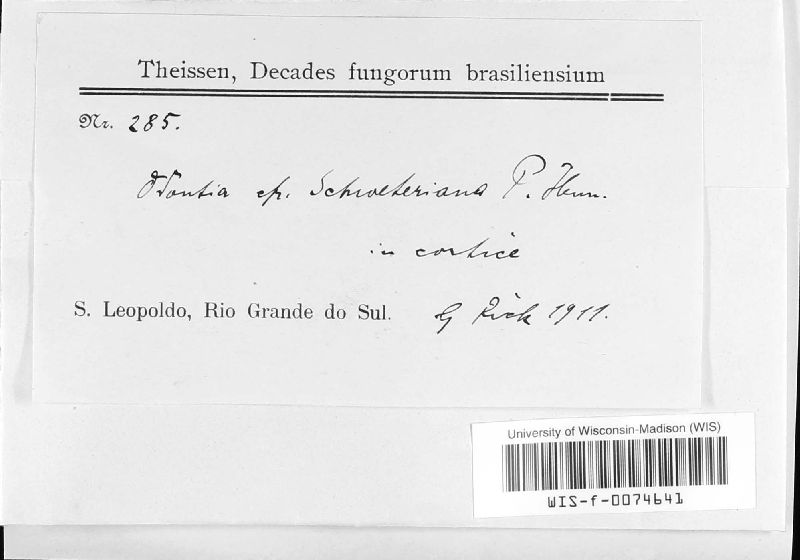 Theissen, Decades fungorum brasiliensium
Nr. 285.
Odontia cfr. Schroeteriana P. Henn.
in cortice
S. Leopoldo, Rio Grande do Sul. lg Rick 1911.
University of Wisconsin-Madison (WIS)
WIS-f-0074641